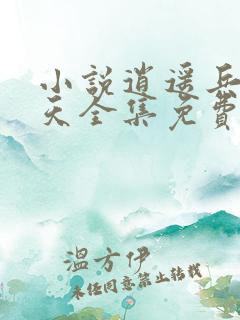 小說逍遥兵
天全集免費
溫方伊
未经同意禁止转载